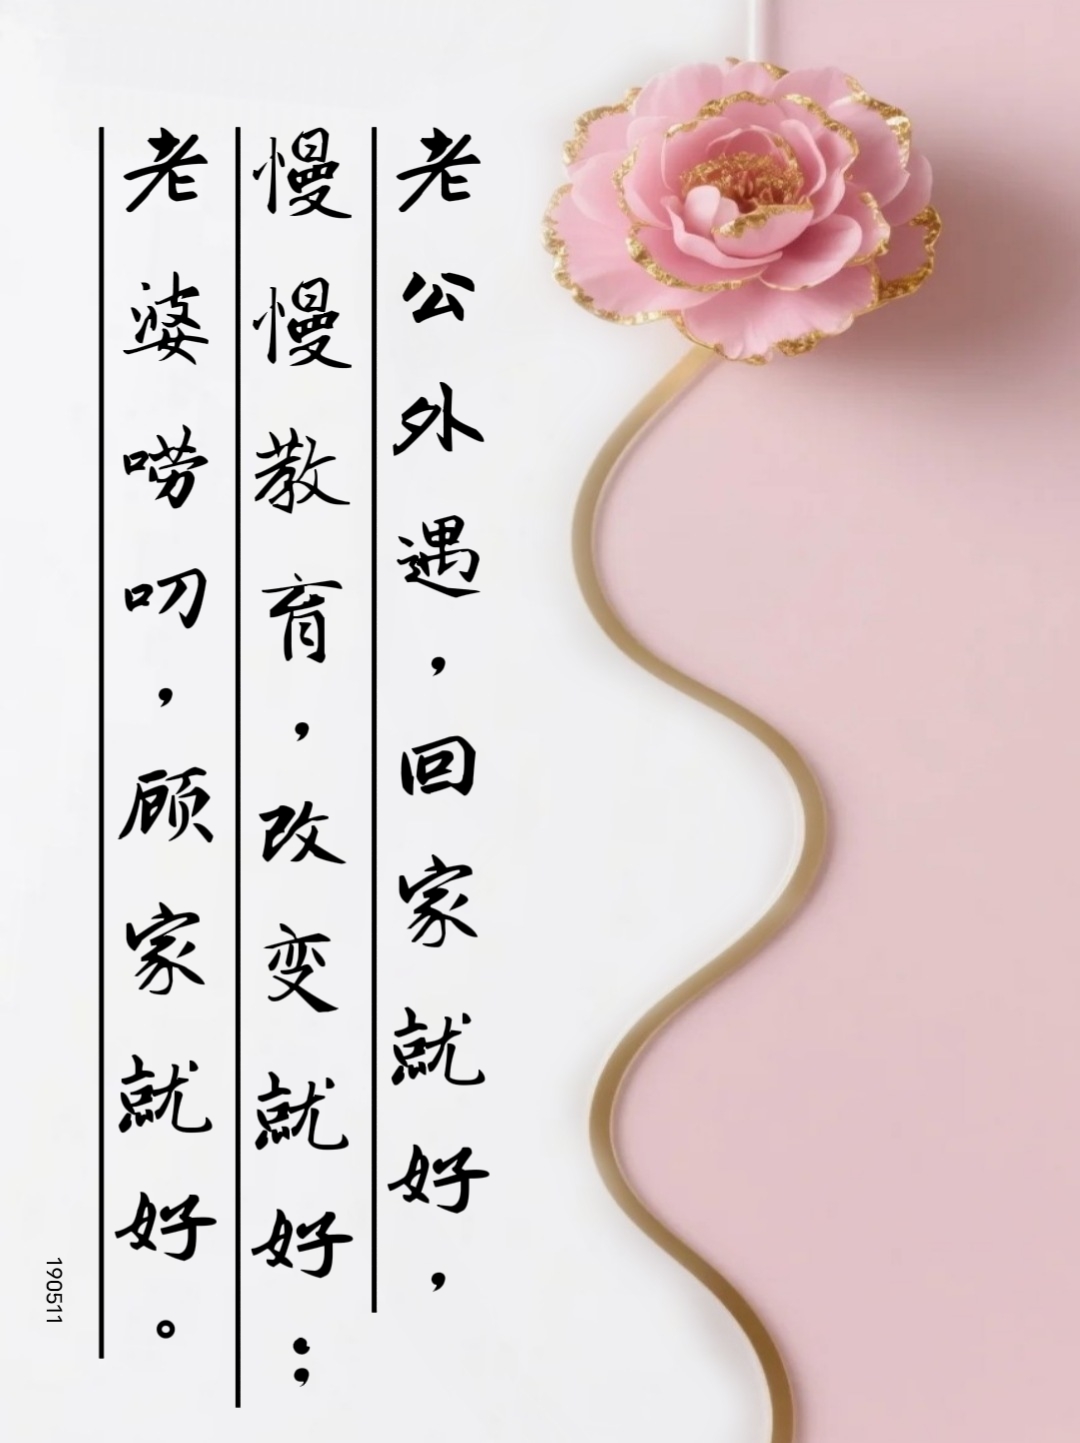 老公外遇，回家就好，
慢慢教育，改变就好；
老婆唠叨，顾家就好。
190511